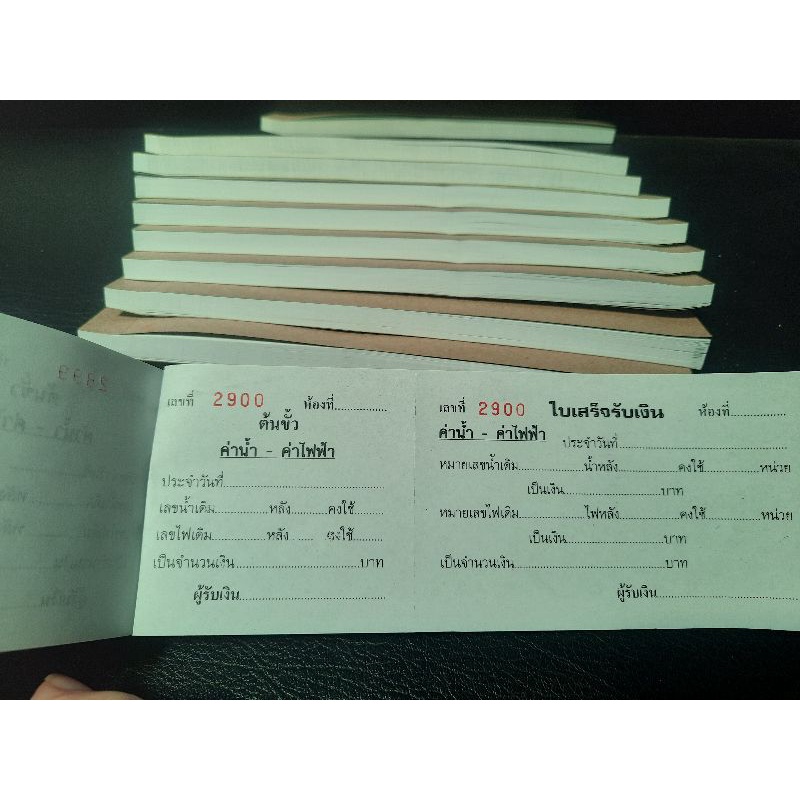 2899
เลขที่ 2900 ห้องที่
ต้นขั้ว
ค่าน้ำ - ค่าไฟฟ้า
ประจำวันที่
เลขน้ำเดิม หลัง คงใช้
เลขไฟเดิม หลัง คงใช้
เป็นจำนวนเงิน บาท
ผู้รับเงิน
เลขที่ 2900 ใบเสร็จรับเงิน ห้องที่
ค่าน้ำ - ค่าไฟฟ้า ประจำวันที่
หมายเลขน้ำเดิม น้ำหลัง คงใช้ หน่วย
เป็นเงิน บาท
หมายเลขไฟเดิม ไฟหลัง คงใช้ หน่วย
เป็นเงิน บาท
เป็นจำนวนเงิน บาท
ผู้รับเงิน